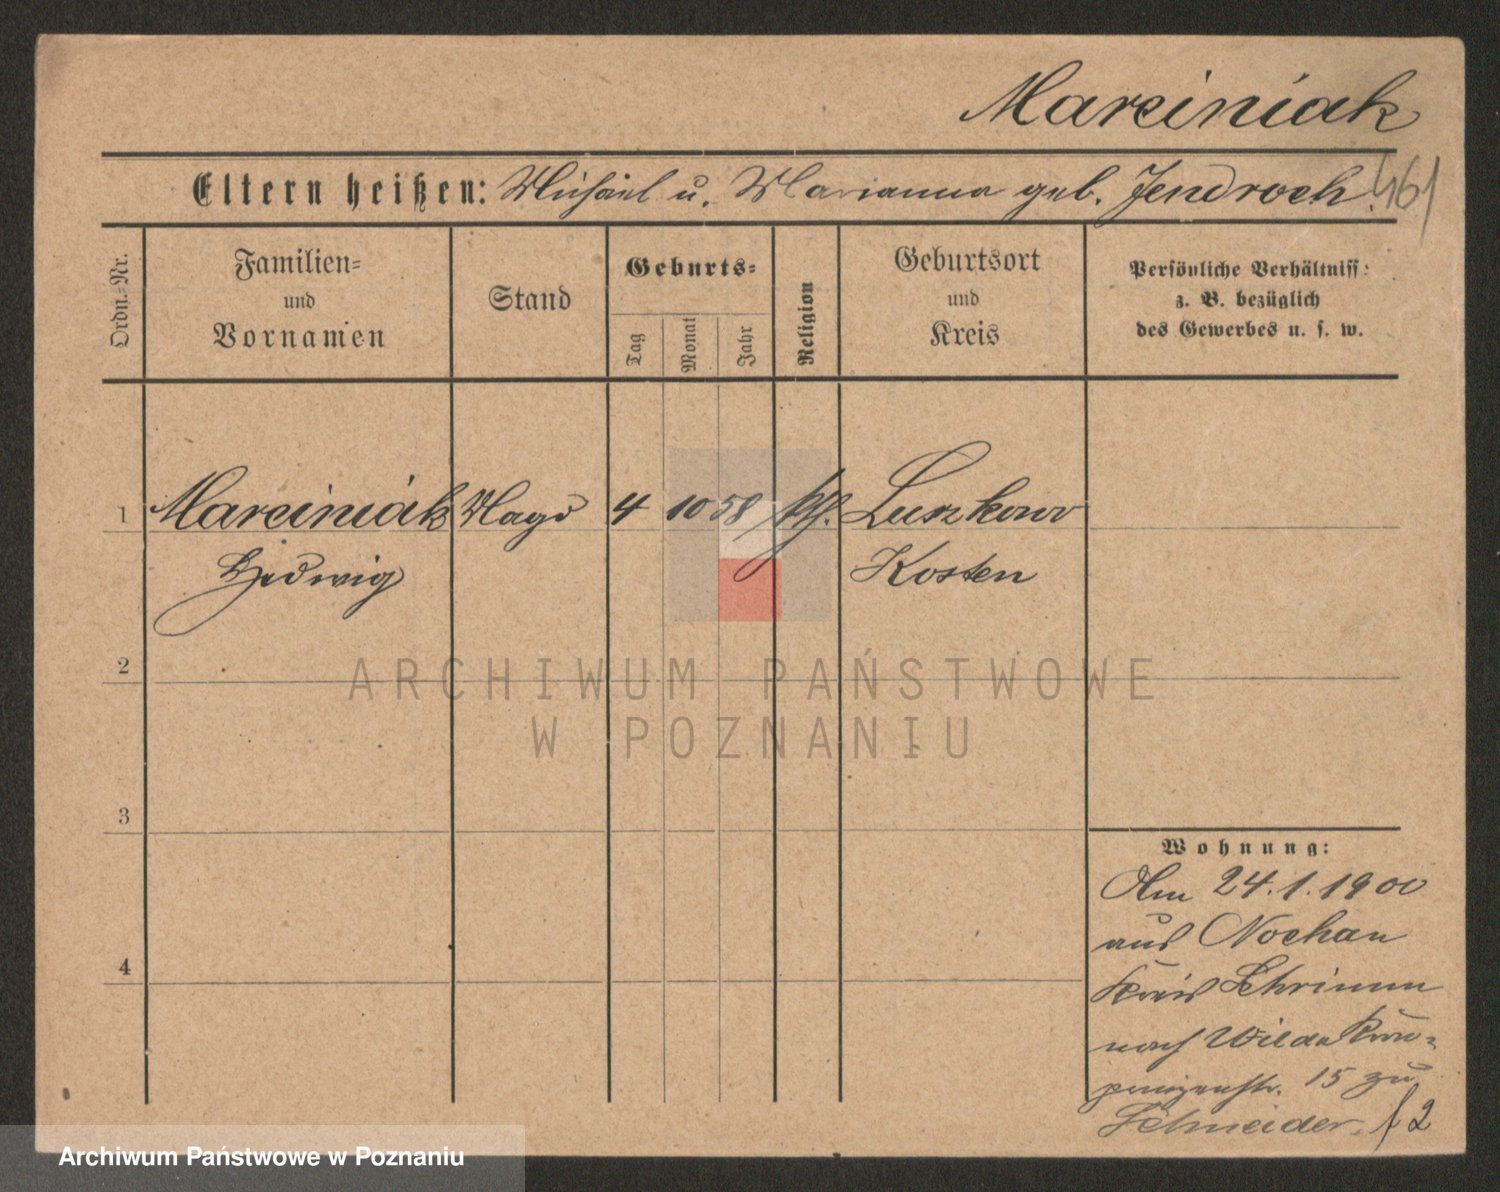 Marciniak
Eltern heißen: Michael u. Marianna geb. Jendroch 461
Ordn.-Nr.
Familien-
und
Vornamen
Stand
Geburts-
Tag
Monat
Jahr
Religion
Geburtsort
und
Kreis
Persönliche Verhältniss:
z. B. bezüglich
des Gewerbes u. s. w.
1 Marciniak Magd 4 10 58 kth. Luszkowo
Hedwig Kosten
2
3
4
ARCHIWUM PAŃSTWOWE
W POZNANIU
Wohnung:
Am 24.1.1900
aus Nochau
Kreis Schrimm
nach Wilda Kron-
prinzenstr. 15 zu
Schneider. 2
Archiwum Państwowe w Poznaniu